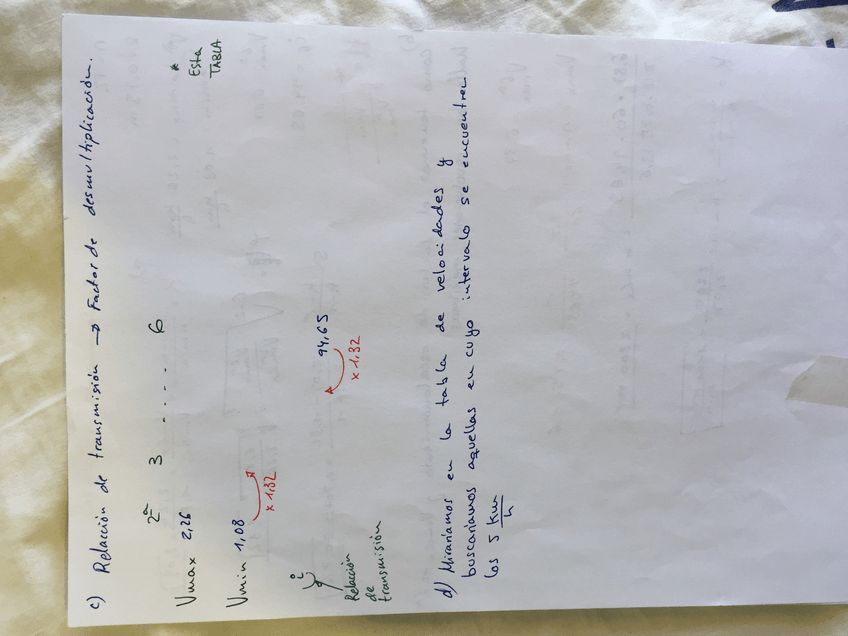 c) Relacción de transmisión → Factor de desmultiplicación.
* Esta
TABLA
2ª 3 - . . . . 6
Vmax 2,26
Vmin 1,08
x 1,32
94,65
x 1,32
Relacción
de
transmisión
d) Mirariamos en la tabla de velocidades y
buscariamos aquellas en cuyo intervalo se encuentren
los 5 km/h